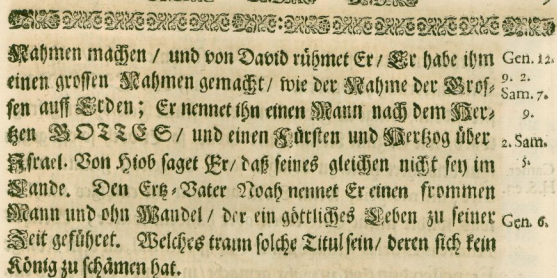 Nahmen machen / und von David rühmet Er / Er habe ihm Gen. 12.
einen grossen Nahmen gemacht / wie der Nahme der Gros- 9. 2. Sam. 7.
sen auff Erden; Er nennet ihn einen Mann nach dem Her- 9.
tzen GOTTES / und einen Fürsten und Hertzog über 2. Sam.
Israel. Von Hiob saget Er / daß seines gleichen nicht sey im 5.
Lande. Den Ertz-Vater Noah nennet Er einen frommen
Mann und ohn Wandel / der ein göttliches Leben zu seiner Gen. 6.
Zeit geführet. Welches traun solche Titul sein / deren sich kein
König zu schämen hat.